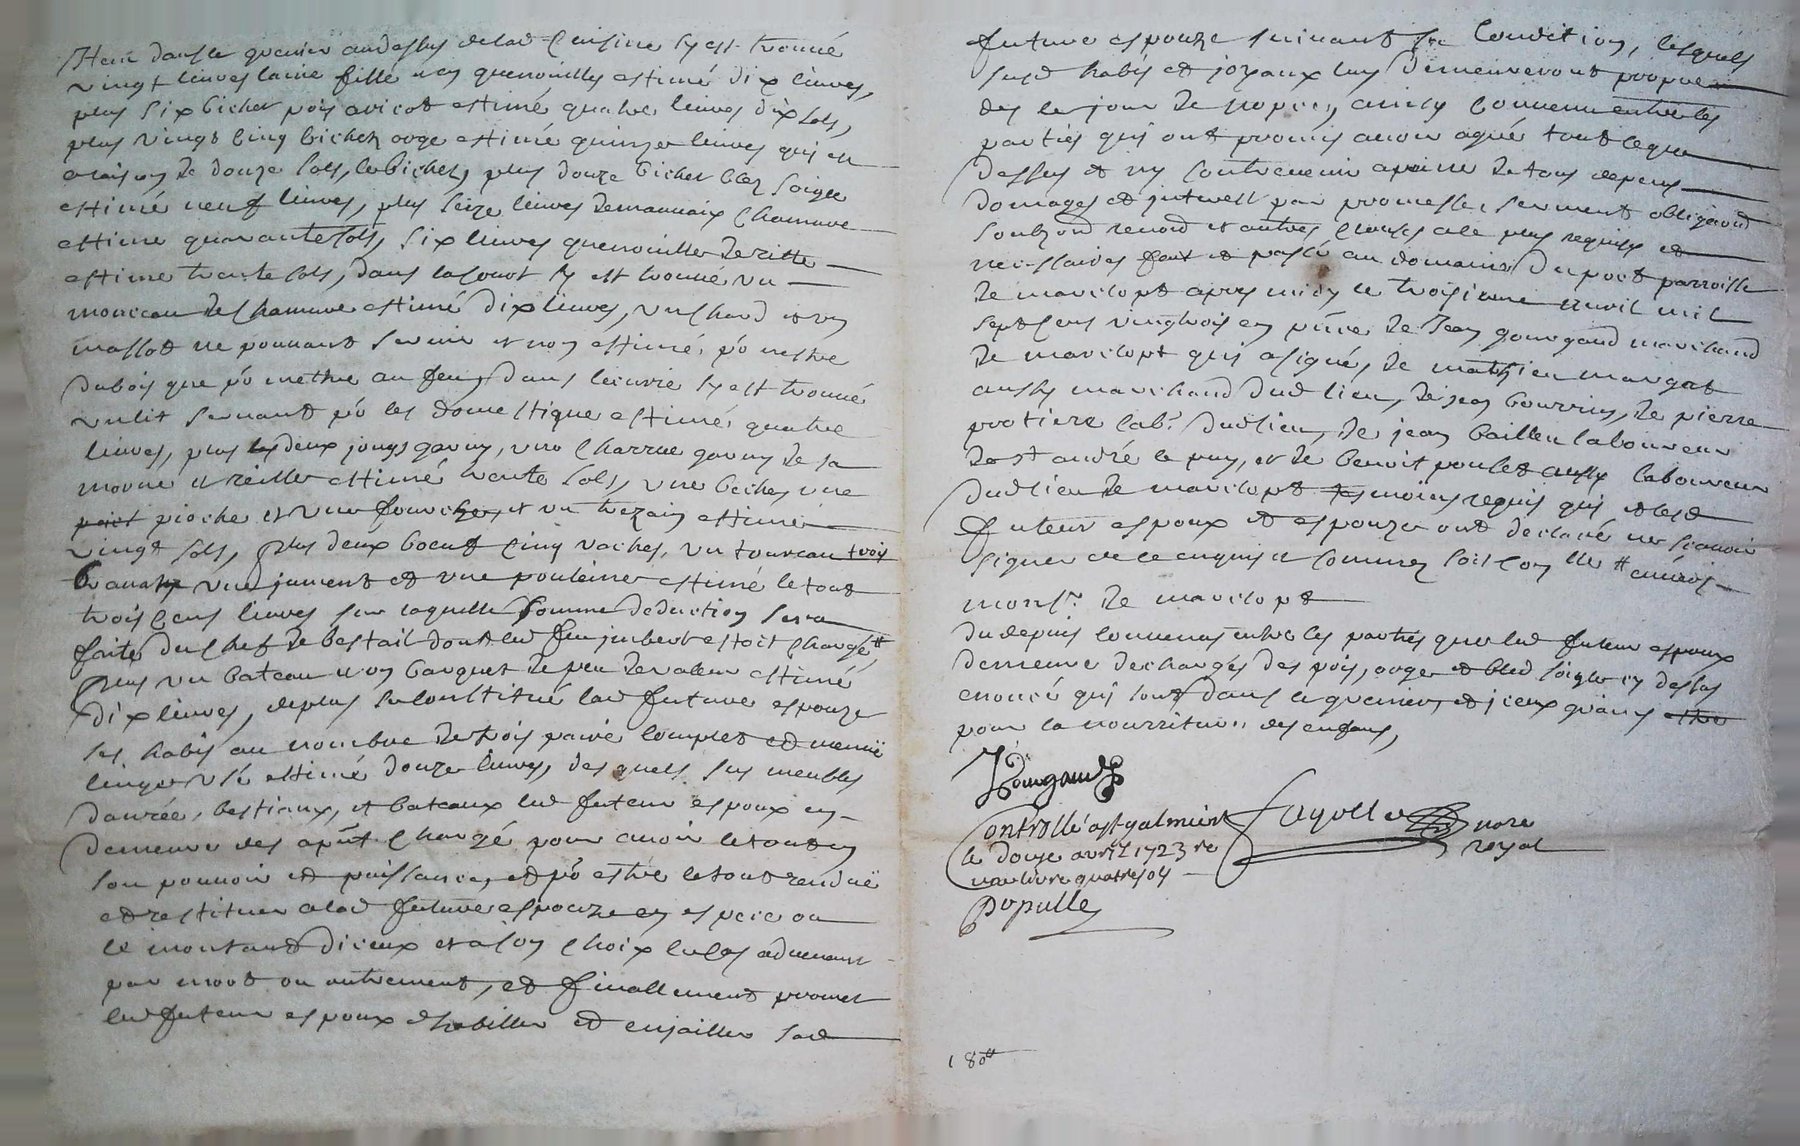 Item dans le grenier audessus de lad cuisine sy est trouvé
vingt livres laine fille en quenouilles estimé dix livres,
plus six bichet pois aricot estimé quatre livres dix sols,
plus vingt cinq bichez orge estimé quinze livres qui est
a raison de douze sols, le bichet, plus douze bichet blez soigle
estimé neuf livres, plus seize livres de mauvaix chamvre
estime quarante sols, six livres quenouilles de ritte
estime trente sols, dans la sout sy est trouvé un
monceau de chamvre estimé dix livres, un chard et un
massot ne pouvant servir et non estimé, po mettre
du bois que po mettre au feu, dans lecurie sy est trouvé
un lit servant po les domestique estimé, quatre
livres, plus deux jougs garny, une charrue garny de sa
morne et reille estimé trente sols, une beches, une
pioche et une fourche, et un trezain estimé
vingt sols, plus deux boeufs cinq vaches, un taureau trois
une jument et une pouleine estimé le tout
trois cens livres sur laquelle somme deduction sera
faite du chef de bestail dont led feu jmbert estoit chargé,
plus un bateau non barquet de peu de valeur estimé
dix livres, de plus se constitue lad future espouze
ses habis au nombre de trois paire complet et menu
linge usé estimé douze livres, des quels sus meubles
danrée, bestiaux, et bateaux led futeur espoux en
demeure des apnt chargé pour avoir le tout en
son pouvoir et puissance, et po estre le tout rendue
et restituer a lad future espouze en espece ou
le montant diceux et a son choix le cas advenant
par mort ou autrement, et finallement promet
led futeur espoux dhabiller et enjailler sad
future espouze suivant sa condition, lesquels
susd habis et joyaux luy demeureront propre
des le jour de nopces, ainsy convenu entre les
parties qui ont promis avoir agré tout ce que
dessus et ny contrevenir a peine de tous depens
domages et jnterest par promesse, serment obligaond
soubzond renond et autres clauses a ce plus requises et
necessaires fait et passé au domaine du port parroisse
de marclopt apres midy le troisieme avril mil
sept cens vingtrois en pnce de Jean gourgaud marchand
de marclopt qui a signé, de mathieu margot
aussy marchand dud lieu, de jean bourrin, de pierre
protiere labr dud lieu, de jean baillen laboureur
de st andré le puy, et de benoit poulet aussy laboureur
dud lieu de marclopt tesmoins requis qui et lesd
futeur espoux et espouze ont declaré ne scavoir
signer de ce enquis et sommez soit con lle
monsr de marclopt
du depuis convenu entre les parties que led futeur espoux
demeure dechargés des pois, orge et bled soigle cy dessus
enoncé qui sont dans le grenier, et jceux
pour la nourriture des enfans,
J Gourgaud
Controllé a st galmier
le douze avril 1723 re
une livre quatre sols
Populle
fayolle nore
royal
180